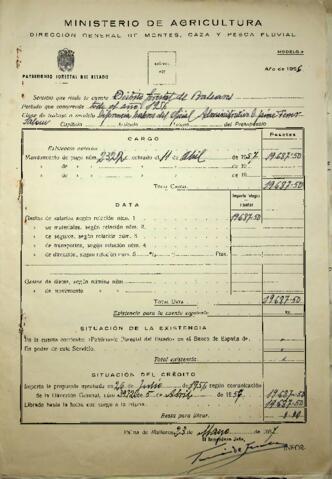 MINISTERIO DE AGRICULTURA
DIRECCIÓN GENERAL DE MONTES, CAZA Y PESCA FLUVIAL
MODELO
PATRIMONIO FORESTAL DEL ESTADO
Año de 1956
Servicio que rinde la cuenta Distrito forestal de Baleares
Periodo que comprende todo el año 1956
Clase de trabajo o servicio
Capítulo Artículo del Presupuesto
CARGO
Pesetas
Mandamiento de pago núm. fechado el 11 de abril de 1957 19.687-50
» » » » de 19
» » » » de 19
TOTAL CARGO 19.687-50
DATA
Gastos de salarios según relación núm. 1 19.687-50
» de materiales, según relación núm. 2
» de seguros, según relación núm. 3
» de transportes, según relación núm. 4
» de dirección, según relación núm. 5 Ptas.
Gastos de dietas, según nómina núm.
» de incremento
TOTAL DATA 19.687-50
Existencia para la cuenta siguiente
SITUACIÓN DE LA EXISTENCIA
En la cuenta corriente «Patrimonio Forestal del Estado» en el Banco de España de
En poder de este Servicio
Total existencia
SITUACIÓN DEL CRÉDITO
Importa la propuesta aprobada en 26 de Julio de 1956 según comunicación
de la Dirección General, núm. de 5 de Abril de 195 19.687-50
Librado hasta la fecha con cargo a la misma 19.687-50
Resta para librar
Palma de Mallorca 23 de Mayo de 1957
El Ingeniero Jefe,
INFOR